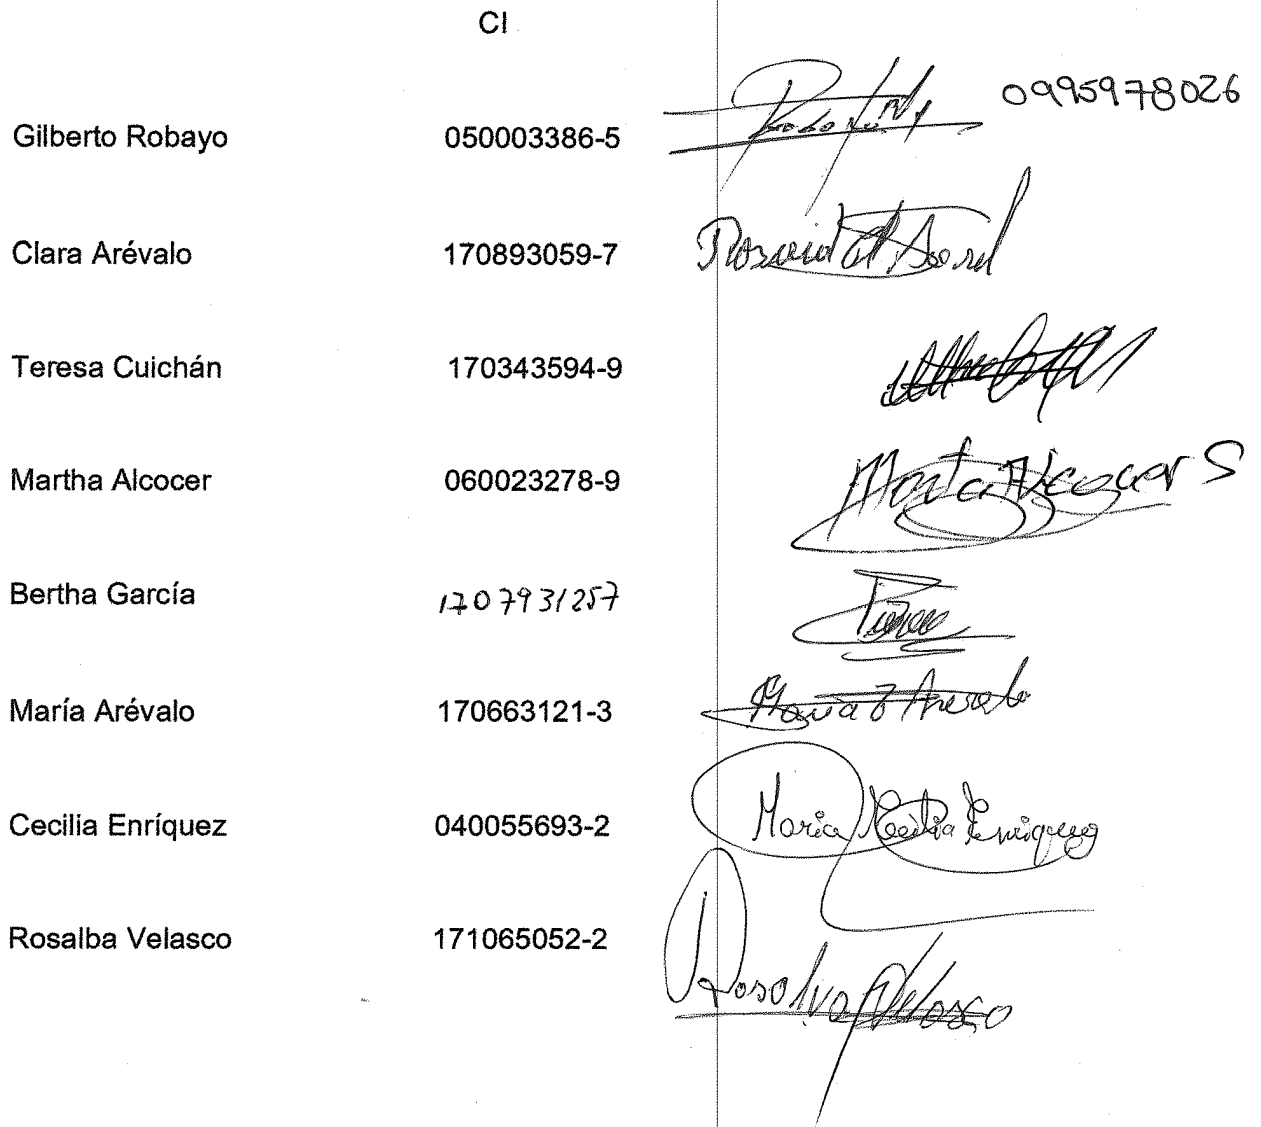 CI
Gilberto Robayo 050003386-5 0995978026
Clara Arévalo 170893059-7
Teresa Cuichán 170343594-9
Martha Alcocer 060023278-9 Marta Alcocer S
Bertha García 1707931257
María Arévalo 170663121-3 Maria Arevalo
Cecilia Enríquez 040055693-2 Maria Cecilia Enriquez
Rosalba Velasco 171065052-2
Rosalva Velasco